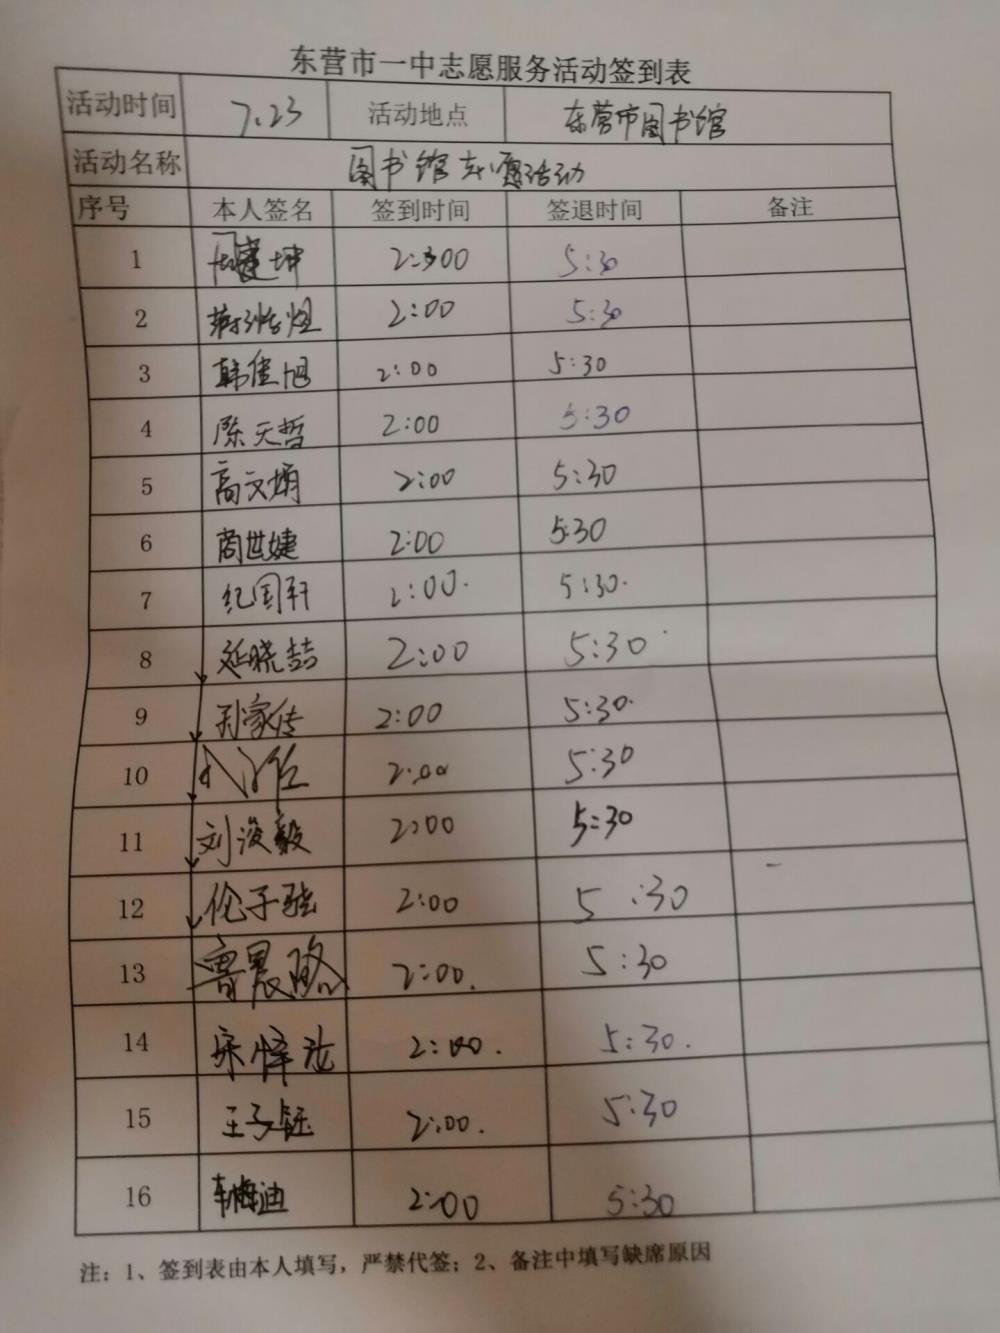 东营市一中志愿服务活动签到表
活动时间 7.23 活动地点 东营市图书馆
活动名称 图书馆志愿活动
序号 本人签名 签到时间 签退时间 备注
1 2:300 5:30
2 2:00 5:30
3 韩佳旭 2:00 5:30
4 陈天哲 2:00 5:30
5 高文 2:00 5:30
6 商世婕 2:00 5:30
7 纪国轩 2:00. 5:30.
8 延晓喆 2:00 5:30
9 孙家传 2:00 5:30.
10 2:00 5:30
11 刘浚毅 2:00 5:30
12 伦子 2:00 5:30
13 鲁晨璐 2:00. 5:30
14 宋怿 2:00. 5:30.
15 王子钰 2:00. 5:30
16 2:00 5:30
注：1、签到表由本人填写，严禁代签；2、备注中填写缺席原因